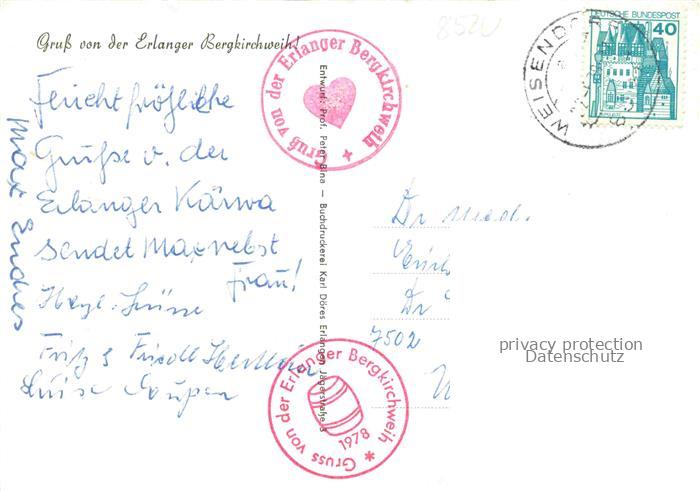 8520
Gruß von der Erlanger Bergkirchweih!
Gruß von der Erlanger Bergkirchweih
DEUTSCHE BUNDESPOST
40
WEISENDO
Feuchtfröhliche
Grüße v. der
Erlanger Kärwa
sendet Max nebst
Frau!
Max Endres
Fritz & Friedl
Luise
Entwurf: Prof. Peter Bina — Buchdruckerei Karl Döres Erlangen Jägerstraße 3
Dr med.
Erich
Dr
7502
privacy protection
Datenschutz
Gruss von der Erlanger Bergkirchweih
1978